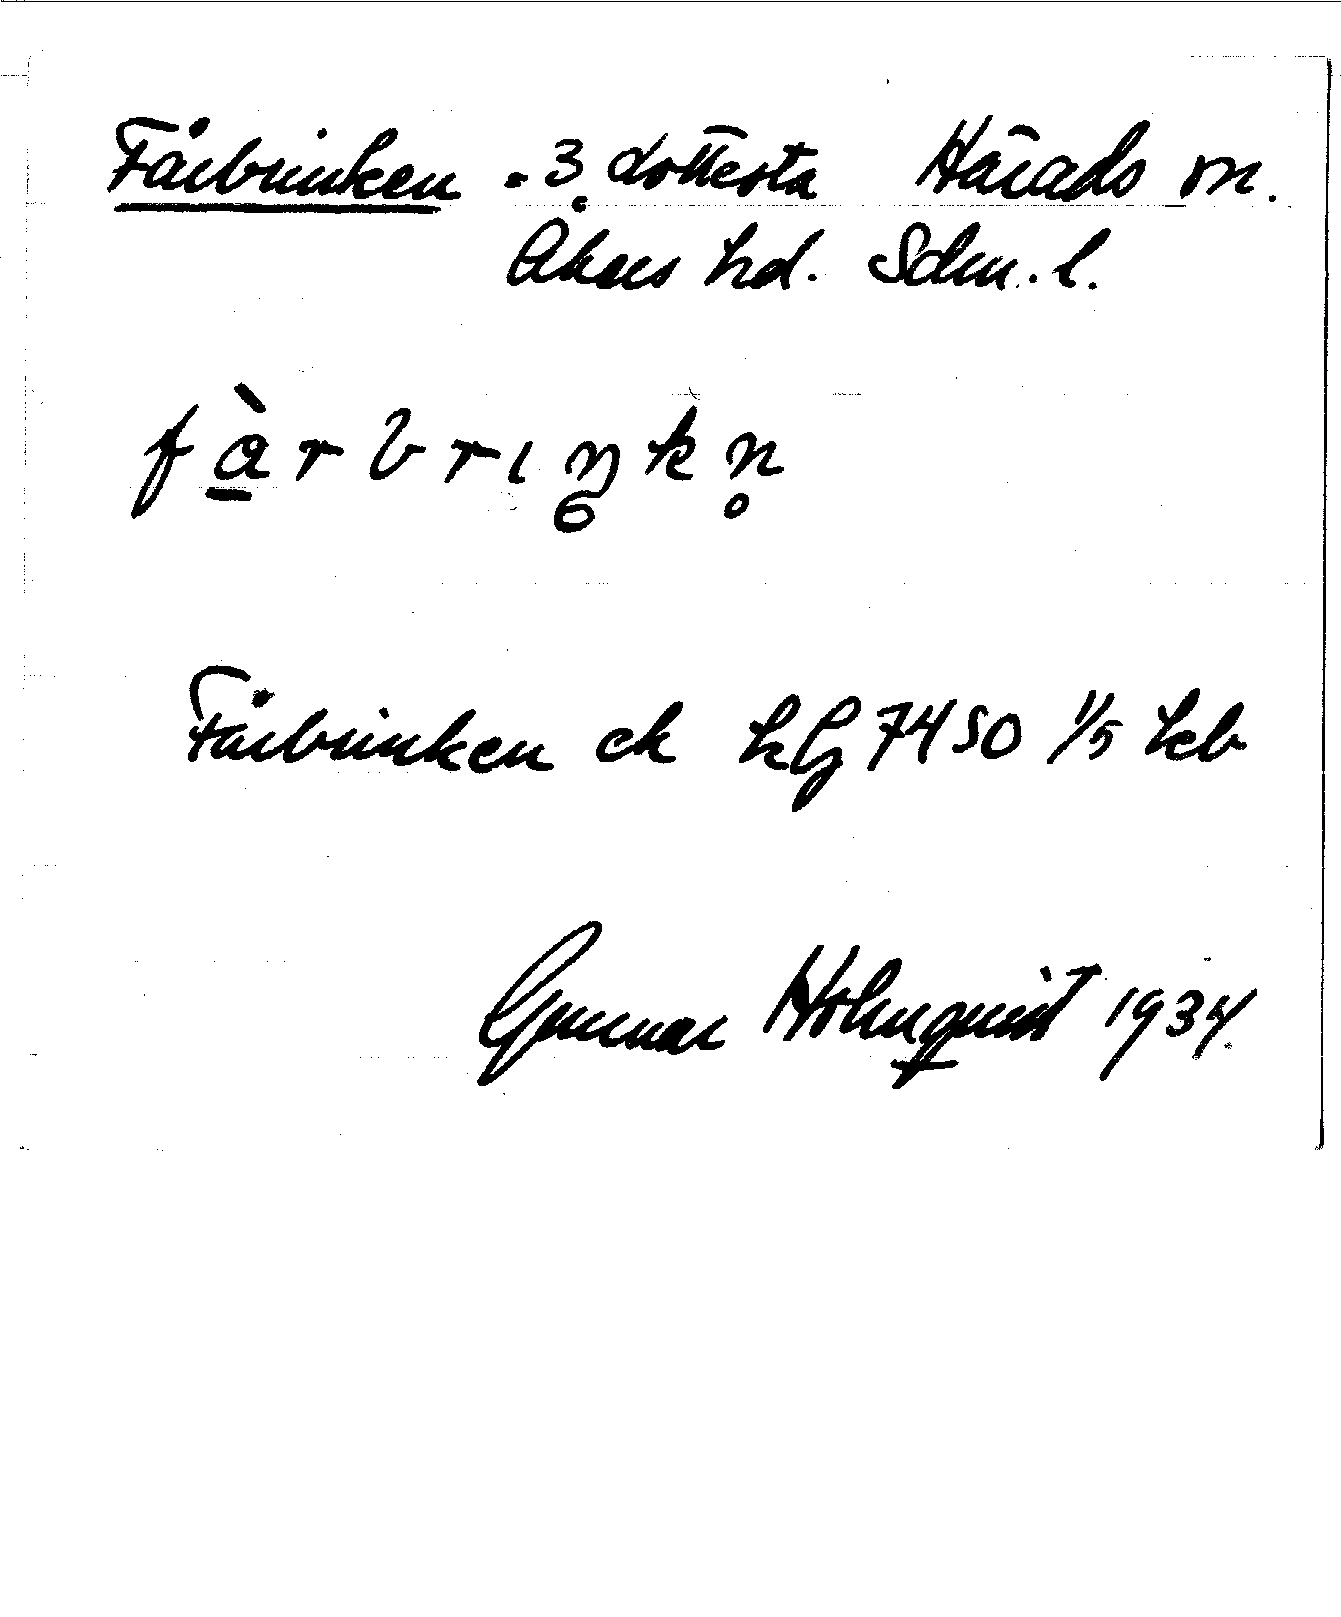 Fårbrinken . 3 Lottersta Härads sn.
Åkers hd. Sdm. l.
f à r b r ı ŋ k n̥
Fårbrinken ek hfl 7450 1/5 keb
Gunnar Holmquist 1934.